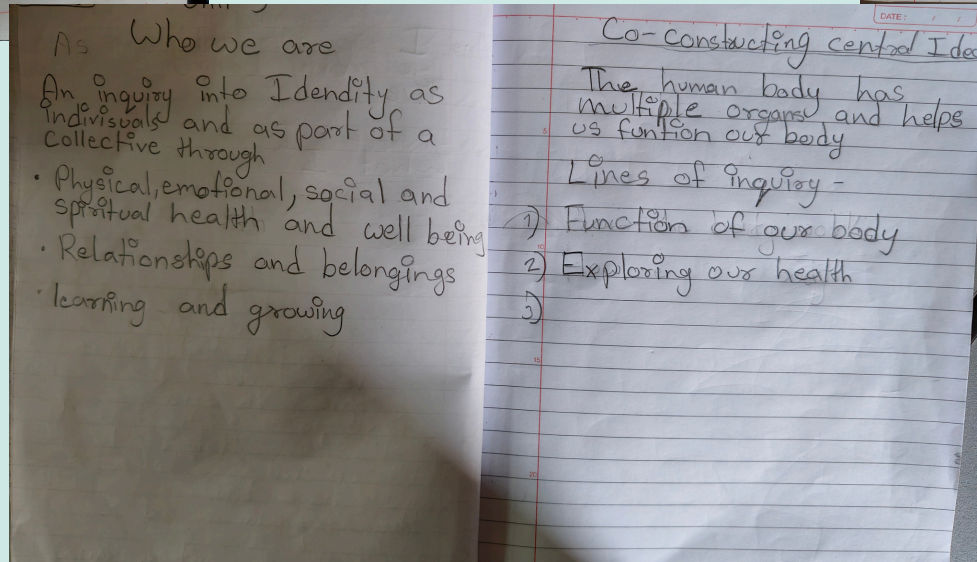 As Who we are
An inquiry into Idendity as
indivisuals and as part of a
collective through
• Physical, emotional, social and
spiritual health and well being
• Relationships and belongings
• learning and growing
DATE: / /
Co-constructing central Idea
The human body has
multiple organs and helps
us funtion our body
Lines of inquiry -
1) Function of our body
2) Exploring our health
3)